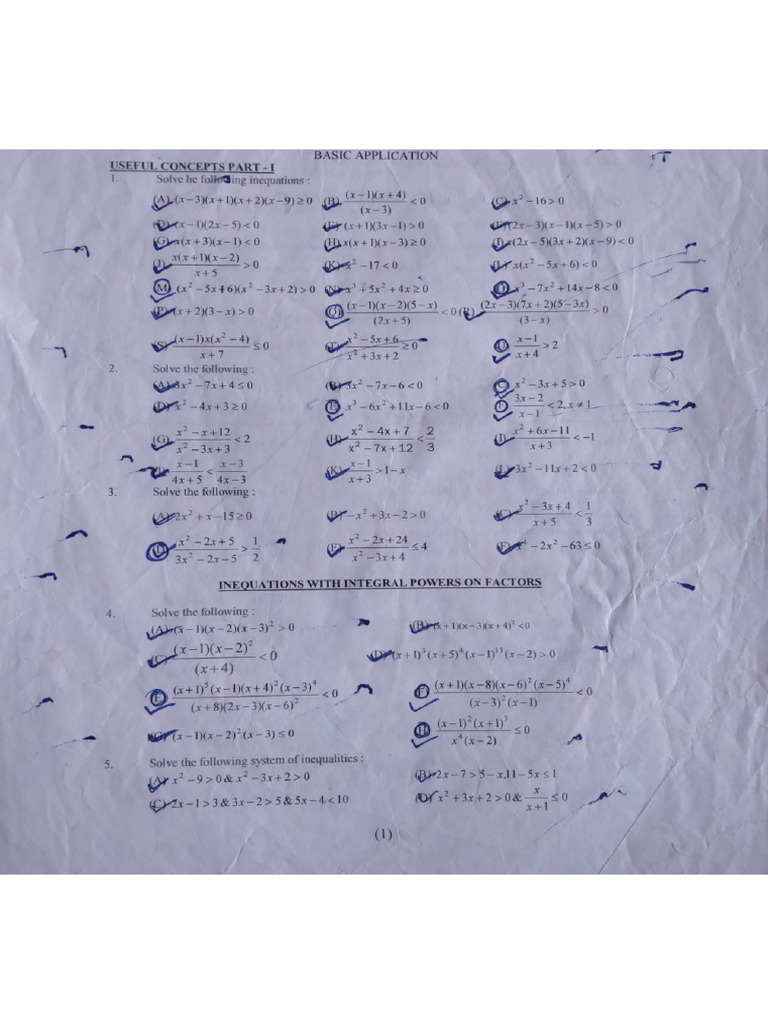 BASIC APPLICATION
USEFUL CONCEPTS PART - I
1. Solve he following inequations :
(A) (x−3)(x+1)(x+2)(x−9) ≥ 0 (B) (x−1)(x+4)/(x−3) < 0 (C) x² −16 > 0
(D) (x−1)(2x−5) < 0 (E) (x+1)(3x−1) > 0 (F) (2x−3)(x−1)(x−5) > 0
(G) x(x+3)(x−1) < 0 (H) x(x+1)(x−3) ≥ 0 (I) x(2x−5)(3x+2)(x−9) < 0
(J) x(x+1)(x−2)/(x+5) > 0 (K) x² −17 < 0 (L) x(x² −5x+6) < 0
(M) (x² −5x+6)(x² −3x+2) > 0 (N) x³ +5x² +4x ≥ 0 (O) x³ −7x² +14x−8 < 0
(P) (x+2)(3−x) > 0 (Q) (x−1)(x−2)(5−x)/(2x+5) < 0 (R) (2x−3)(7x+2)(5−3x)/(3−x) > 0
(S) (x−1)x(x² −4)/(x+7) ≤ 0 (T) (x² −5x+6)/(x² +3x+2) ≥ 0 (U) (x−1)/(x+4) > 2
2. Solve the following :
(A) 3x² −7x+4 ≤ 0 (B) 3x² −7x−6 < 0 (C) x² −3x+5 > 0
(D) x² −4x+3 ≥ 0 (E) x³ −6x² +11x−6 < 0 (F) (3x−2)/(x−1) < 2, x ≠ 1
(G) (x² −x+12)/(x² −3x+3) < 2 (H) (x² −4x+7)/(x² −7x+12) < 2/3 (I) (x² +6x−11)/(x+3) < −1
(J) (x−1)/(4x+5) < (x−3)/(4x−3) (K) (x−1)/(x+3) > 1−x (L) 3x² −11x+2 < 0
3. Solve the following :
(A) 2x² +x−15 ≥ 0 (B) −x² +3x−2 > 0 (C) (x² −3x+4)/(x+5) < 1/3
(D) (x² −2x+5)/(3x² −2x−5) > 1/2 (E) (x² −2x+24)/(x² −3x+4) ≤ 4 (F) x⁴ −2x² −63 ≤ 0
INEQUATIONS WITH INTEGRAL POWERS ON FACTORS
4. Solve the following :
(A) (x−1)(x−2)(x−3)² > 0 (B) (x+1)(x−3)(x+4)² < 0
(C) (x−1)(x−2)²/(x+4) < 0 (D) (x+1)³(x+5)⁴(x−1)¹³(x−2) > 0
(E) (x+1)⁵(x−1)(x+4)²(x−3)⁴/(x+8)(2x−3)(x−6)² < 0 (F) (x+1)(x−8)(x−6)²(x−5)⁴/(x−3)²(x−1) < 0
(G) (x−1)(x−2)²(x−3) ≤ 0 (H) (x−1)²(x+1)³/x⁴(x−2) ≤ 0
5. Solve the following system of inequalities :
(A) x² −9 > 0 & x² −3x+2 > 0 (B) 2x−7 > 5−x, 11−5x ≤ 1
(C) 2x−1 > 3 & 3x−2 > 5 & 5x−4 < 10 (D) x² +3x+2 > 0 & x/(x+1) ≤ 0
(1)